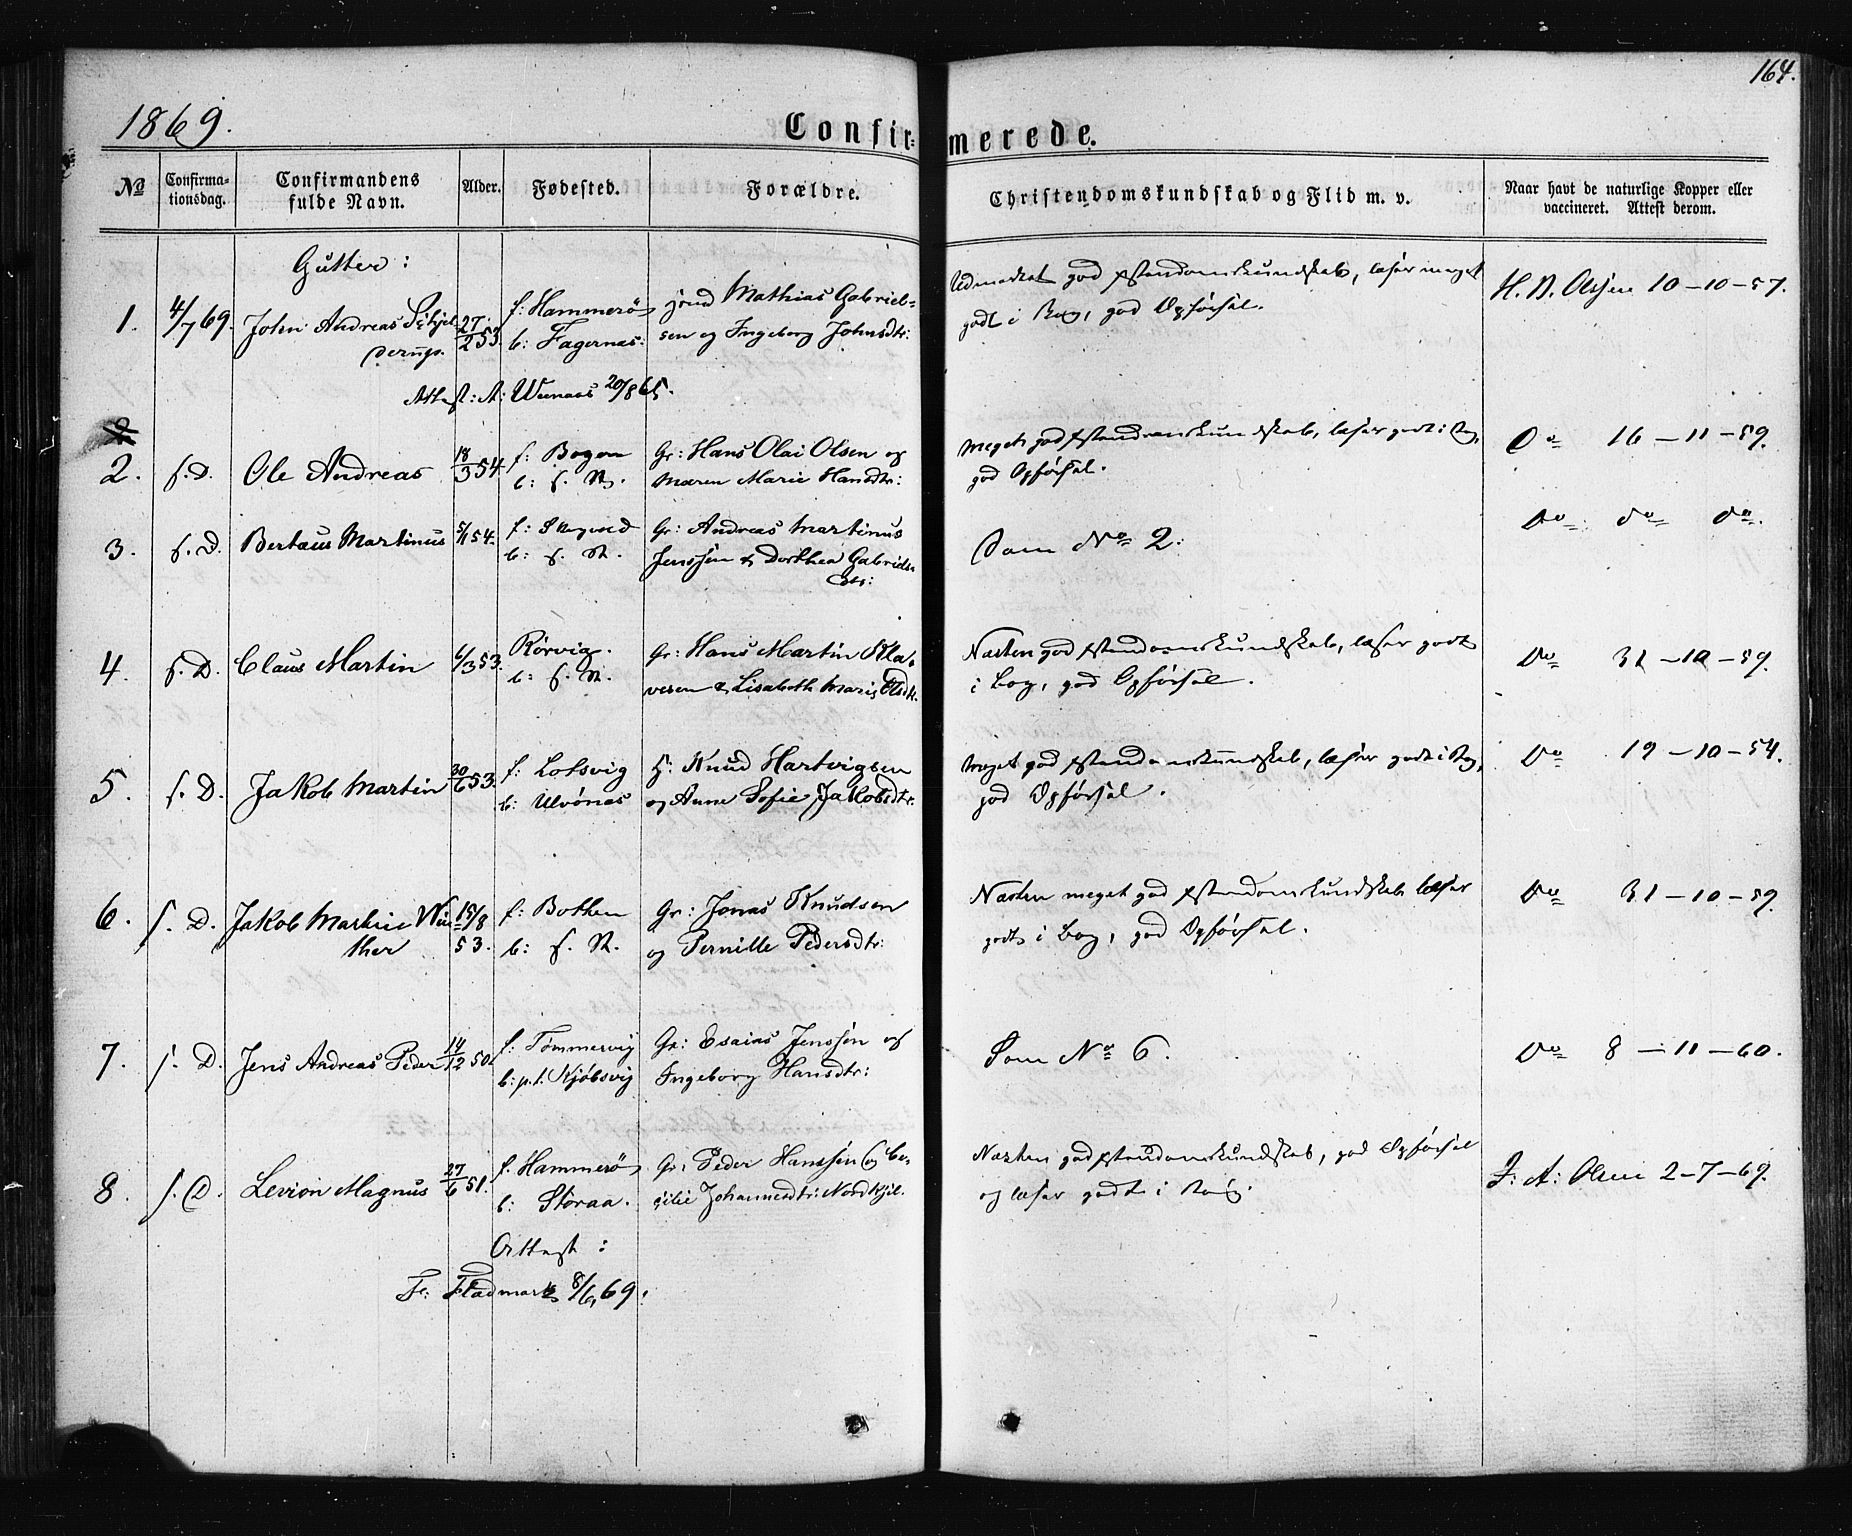 164.
1869.
Confir- merede.
No
Confirma-
tionsdag.
Confirmandens
fulde Navn.
Alder.
Fødested.
Forældre.
Christendomskundskab og Flid m. v.
Naar havt de naturlige Kopper eller
vaccineret. Attest derom.
Gutter:
1. 4/7 69. John Andreas 27/2 53. f: Hammerö Mathias Gabriel-
b: Fagernæs. sen og Ingeborg Johnsdtr:
Udmærket god Xstendomskundskab, læser meget
godt i Bog, god Opförsel.
H. D. Olsen 10-10-57.
Attest: A: 20/8 65.
2. s. D. Ole Andreas 18/3 54. f: Bogen Gr: Hans Olai Olsen og
b: s. St. Maren Marie Hansdtr:
Meget god Xstendomskundskab, læser godt i Bog,
god Opförsel.
Do 16-11-59.
3. s. D. Bertæus Martinus 5/1 54. f: Gr: Andreas Martinus
b: s. St. Jenssen & Dorthea Gabriels
dtr:
Som No 2.
Do do do.
4. s. D. Claus Martin 6/3 53. Rörvig. Gr: Hans Martin Kla-
b: s. St. vesen & Lisabeth Marie Olsdtr.
Næsten god Xstendomskundskab, læser godt
i Bog, god Opförsel.
Do 31-10-59.
5. s. D. Jakob Martin 30/6 53. f: Lotsvig H: Knud Hartvigsen
b: Ulvönæs og Anne Sofie Jakobsdtr.
Meget god Xstendomskundskab, læser godt i Bog,
god Opförsel.
Do 19-10-54.
6. s. D. Jakob Martin Win 15/8 f: Bothen Gr: Jonas Knudsen
ther 53. b: s. St. og Pernille Pedersdtr:
Næsten meget god Xstendomskundskab læser
godt i Bog, god Opförsel.
Do 31-10-59.
7. s. D. Jens Andreas Peder 14/12 50. f: Tömmervig Gr: Esaias Jenssen og
b: p.t. Kjöbsvig Ingeborg Hansdtr:
Som No 6.
Do 8-11-60.
8. s. D. Levion Magnus 27/6 51. f. Hammerö Gr: Peder Hanssen og Ce-
b: Storaa. cilie Johannesdtr: Nordkjil.
Næsten god Xstendomskundskab, god Opförsel
og læser godt i Bog.
J: A: Olsen 2-7-69.
Attest:
Fr: Fladmark 8/6, 69.